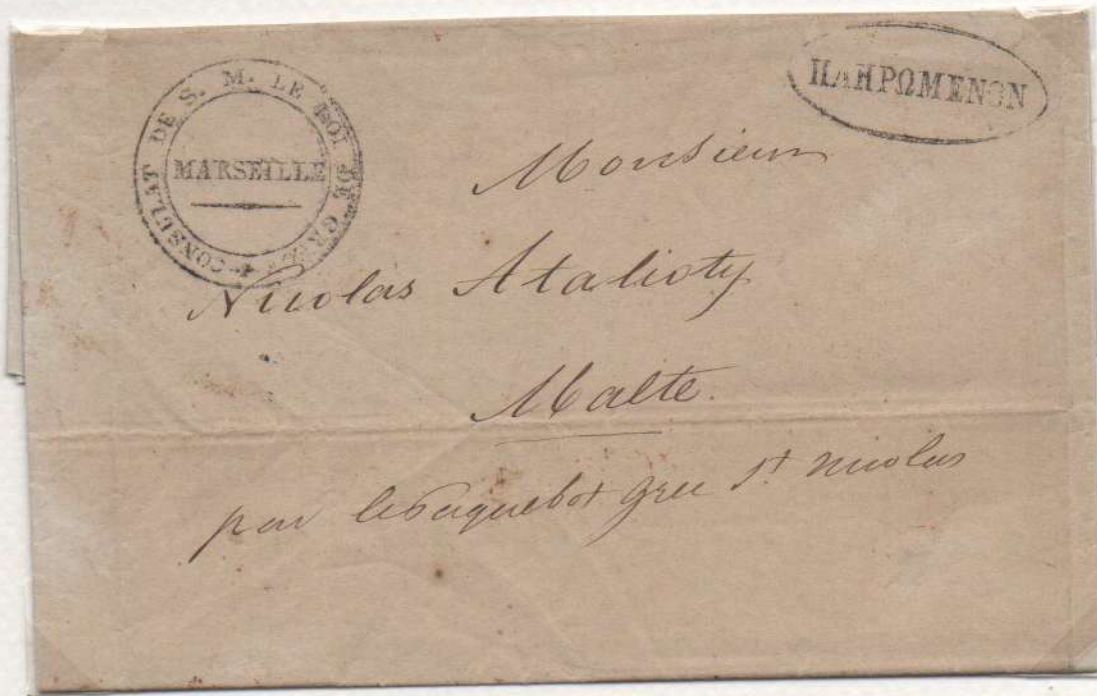 CONSULAT DE S. M. LE ROI DE GRÈCE
MARSEILLE
ΠΛΗΡΩΜΕΝΟΝ
Monsieur
Nicolas Atalioty
Malte.
par le Paquebot grec St. Nicolas